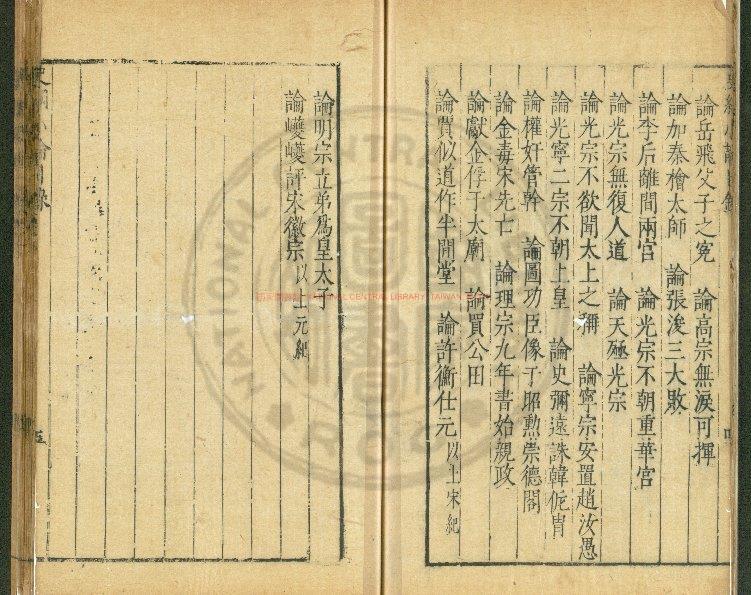 論岳飛父子之冤　論高宗無淚可揮
論加秦檜太師　論張浚三大敗
論李后離間兩宮　論光宗不朝重華宮
論光宗無復人道　論天殛光宗
論光宗不欲聞太上之稱　論寧宗安置趙汝愚
論光寧二宗不朝上皇　論史彌遠誅韓侂胄
論權奸管幹　論圖功臣像于昭勲崇德閣
論金毒宋先亡　論理宗九年書始親政
論獻金俘于太廟　論買公田
論賈似道作半閒堂　論許衡仕元　以上宋紀
論明宗立弟為皇太子
論巙巙評宋徽宗　以上元紀
NATIONAL CENTRAL LIBRARY, TAIWAN